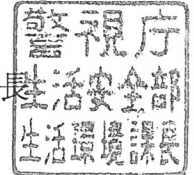 長
警視庁
生活安全部
生活環境課長